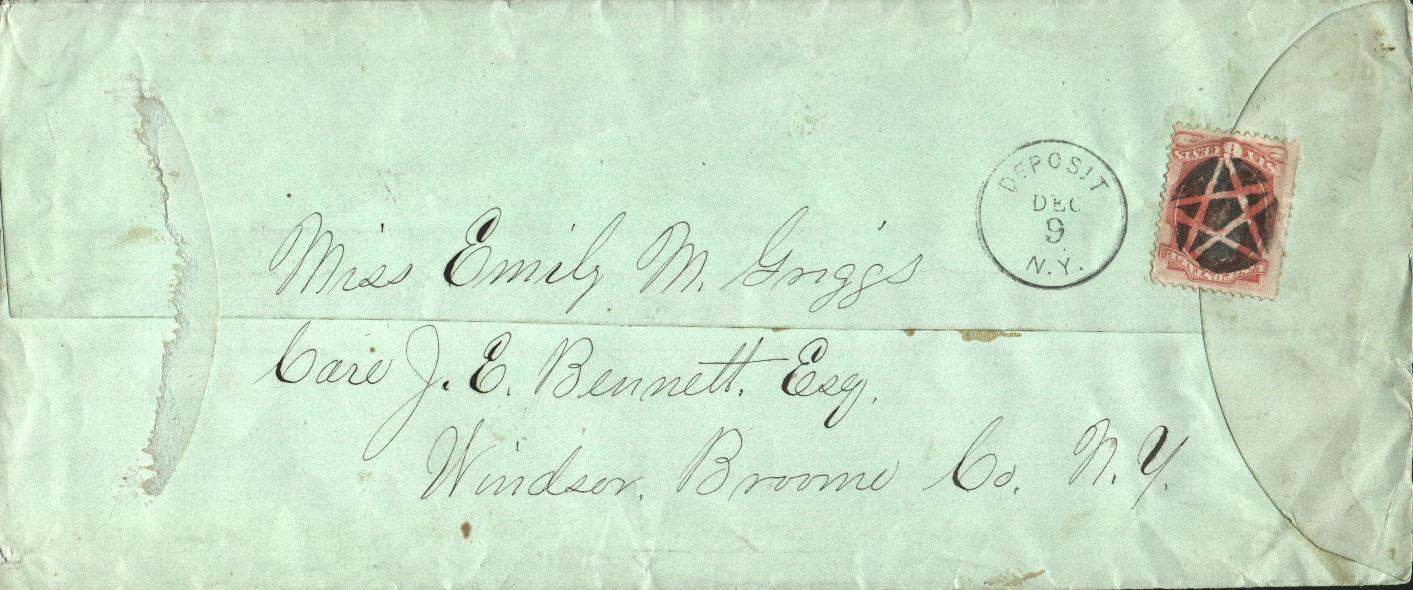 DEPOSIT
DEC
9
N.Y.
Miss Emily M. Griggs
Care J. E. Bennett. Esq.
Windsor. Broome Co. N.Y.